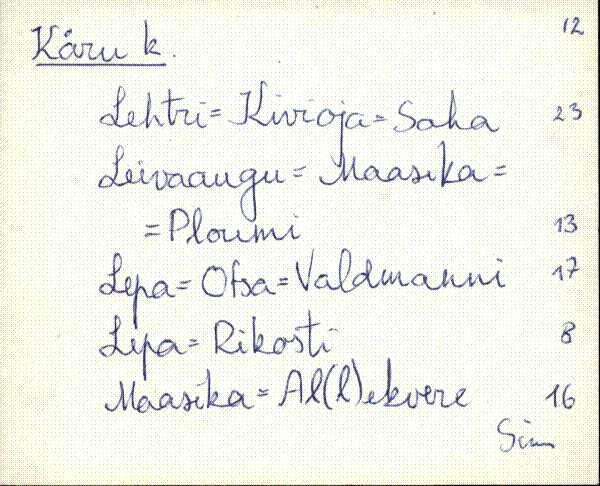 12
Käru k.
Lehtri = Kivioja = Saha 23
Leivaaugu = Maasika =
= Ploumi 13
Lepa = Otsa = Valdmanni 17
Lepa = Rikosti 8
Maasika = Al(l)ekvere 16